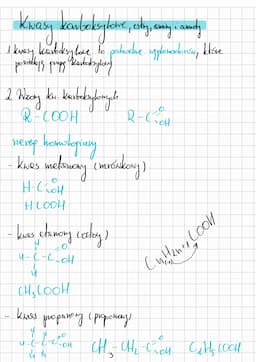 Kwasy karboksylowe, estry, aminy i amidy
1. kwasy karboksylowe to pochodne węglowodorów, które
posiadają grupę karboksylową
2. Wzory kw. karboksylowych
R-COOH R-C=O-OH
szereg homologiczny
- kwas metanowy (mrówkowy)
H-C=O-OH
HCOOH
CnH2n+1COOH
- kwas etanowy (octowy)
H-C-C=O-OH
CH3COOH
- kwas propanowy (propionowy)
H-C-C-C=O-OH CH3-CH2-C=O-OH C2H5COOH